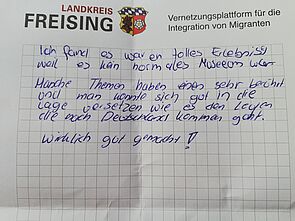 LANDKREIS
FREISING
Vernetzungsplattform für die
Integration von Migranten
Ich fand es war ein tolles Erlebniss
weil es kein normales Museum war
Manche Themen haben einen sehr berührt
und man konnte sich gut in die
Lage versetzen wie es den Leuten
die nach Deutschland kommen geht.
Wirklich gut gemacht!